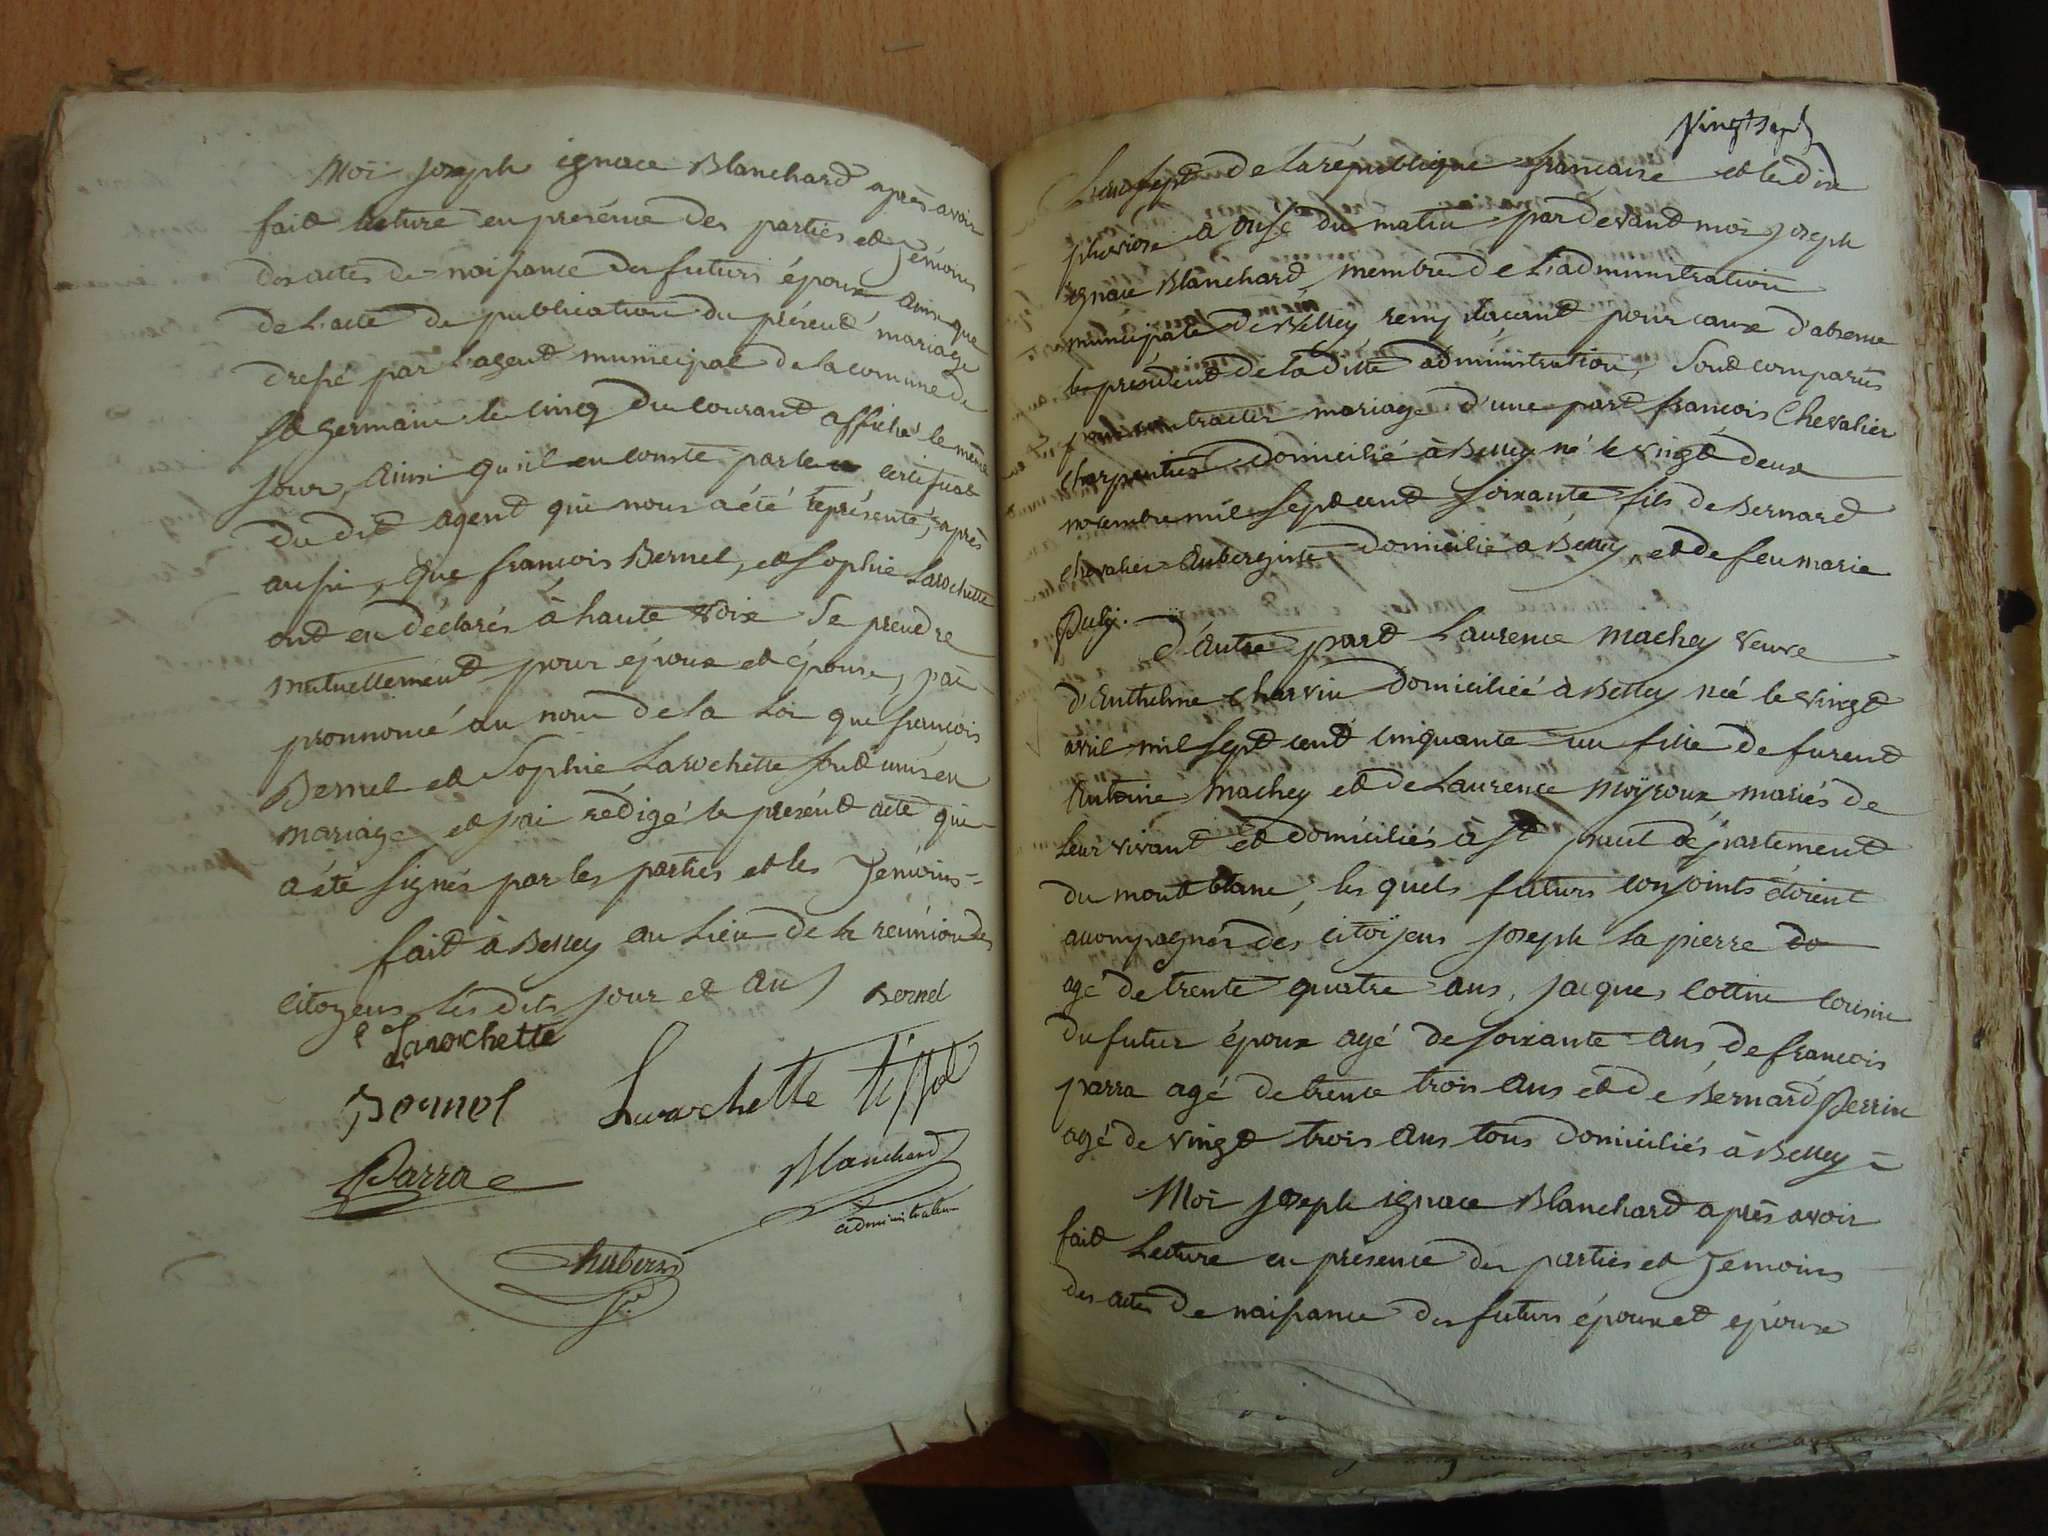 Moi joseph ignace Blanchard après avoir
fait lecture en presénce des parties et Témoins
des actes de naissance des futurs époux ainsi que
de L'acte de publication du présent mariage
dressé par l'agent municipal de la comune de
St germain le cinq du courant affiché le même
jour, ainsi qu'il en conste par le certificat
du dit agent qui nous a été représenté, après
aussi, que françois Bernel, et Sophie Larochette
ont eu déclarés à haute voix Se prendre
mutuellement pour époux et épouse, j'ai
pronnoncé au nom de la Loi que françois
Bernel et Sophie Larochette sont unis en
mariage et j'ai rédigé le présent acte qui
a été signés par les parties et les Témoins =
fait à Belley au Lieu de la réunion des
citoyens les dits jour et an Bernel
Larochette
Bernel Larochette tissot
Parra Blanchard
administrateur
hubert
Vingt sept
L'an sept de la république françaire et le dix
pluviose a onse du matin par devant moi joseph
ignace Blanchard, membre de L'administration
municipale de Belley remplacant pour cause d'absence
le président de la ditte administration, Sont comparus
pour contracter mariage d'une part françois Chevalier
charpentier domicilié à Belley né le vingt deux
novembre mil Sept cent soixante fils de Bernard
chevalier Aubergiste domicilié a Belley, et de feu marie
d'autre part Laurence machey veuve
d'Anthelme charvin domiciliée à Belley née le vingt
avril mil sept cent cinquante un fille de furent
Antoine machey et de Laurence moÿroux mariés de
Leur vivant et domiciliés à St département
du mont blanc, les quels futurs conjoints étoient
accompagnés des citoÿens joseph la pierre do
agé de trente quatre ans, jacques cottin cousin
du futur époux agé de soixante ans, de françois
parra agé de trente trois ans et de Bernard Perrin
agé de vingt trois ans tous domiciliés à Belley =
Moi joseph ignace Blanchard après avoir
fait Lecture en présence des parties et Temoins
des actes de naissance des futurs époux et épouse